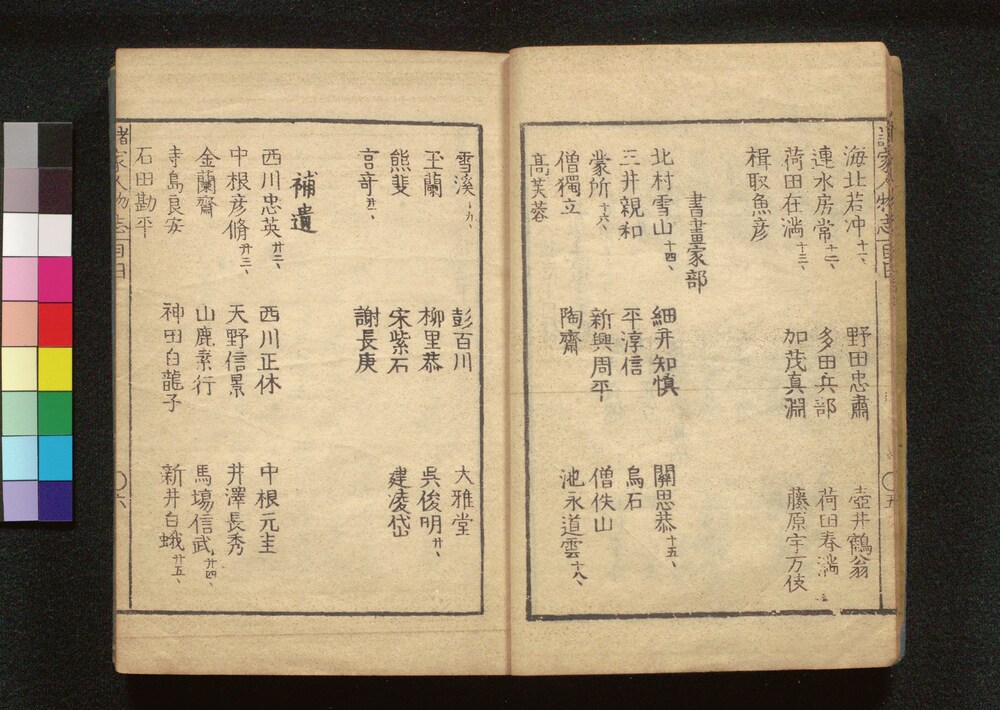 海北若冲十一、 野田忠肅 壺井鶴翁
連水房常十二、 多田兵部 荷田春満
荷田在満十三、 加茂真淵 藤原宇万伎
楫取魚彦
書畫家部
北村雪山十四、 細井知慎 關思恭十五、
三井親和 平淳信 烏石
蒙所十六、 新興周平 僧佚山
僧獨立 陶齋 池永道雲十八、
髙芙蓉
雪溪十九、 彭百川 大雅堂
玉蘭 柳里恭 呉俊明廿、
熊斐 宋紫石 建凌岱
言竒廿一、 謝長庚
補遺
西川忠英廿二、 西川正休 中根元圭
中根彦脩廿三、 天野信景 井澤長秀
金蘭齋 山鹿素行 馬塲信武廿四、
寺島良安 神田白龍子 新井白蛾廿五、
石田勘平
諸家人物志 目 六